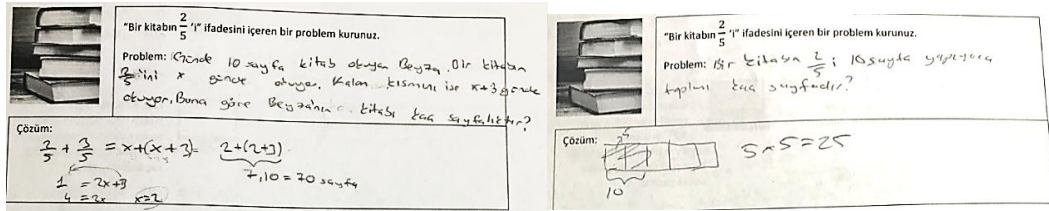 "Bir kitabın 2/5 'i" ifadesini içeren bir problem kurunuz.
Problem: Günde 10 sayfa kitab okuyan Beyza, Bir kitabın
2/5 ini x günde okuyor. Kalan kısmını ise x+3 günde
okuyor. Buna göre Beyza'nın kitabı kaç sayfalıktır?
Çözüm:
2/5 + 3/5 = x+(x+3) = 2+(2+3)
7.10 = 70 sayfa
1 = 2x+3
4 = 2x x=2
"Bir kitabın 2/5 'i" ifadesini içeren bir problem kurunuz.
Problem: Bir kitabın 2/5 i 10 sayfa
toplam kaç sayfadır?
Çözüm:
5 x 5 = 25
10